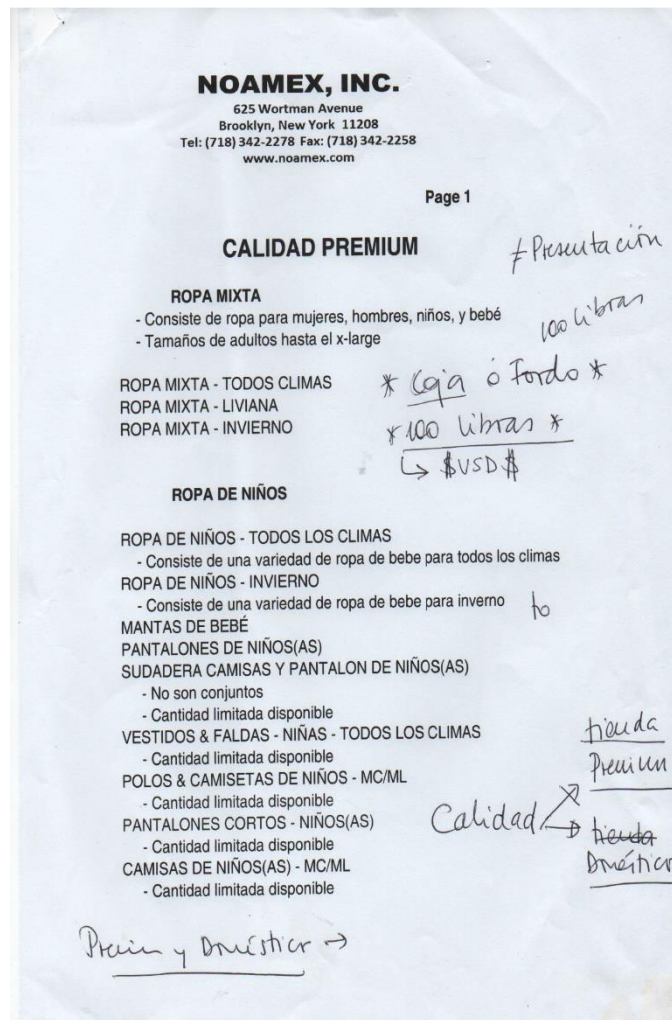 NOAMEX, INC.
625 Wortman Avenue
Brooklyn, New York 11208
Tel: (718) 342-2278 Fax: (718) 342-2258
www.noamex.com
Page 1
CALIDAD PREMIUM
≠ Presentación
ROPA MIXTA
- Consiste de ropa para mujeres, hombres, niños, y bebé
- Tamaños de adultos hasta el x-large
100 libras
ROPA MIXTA - TODOS CLIMAS
* Caja ó Fardo *
ROPA MIXTA - LIVIANA
ROPA MIXTA - INVIERNO
* 100 libras *
↳ $USD$
ROPA DE NIÑOS
ROPA DE NIÑOS - TODOS LOS CLIMAS
- Consiste de una variedad de ropa de bebe para todos los climas
ROPA DE NIÑOS - INVIERNO
- Consiste de una variedad de ropa de bebe para inverno
MANTAS DE BEBÉ
PANTALONES DE NIÑOS(AS)
SUDADERA CAMISAS Y PANTALON DE NIÑOS(AS)
- No son conjuntos
- Cantidad limitada disponible
VESTIDOS & FALDAS - NIÑAS - TODOS LOS CLIMAS
- Cantidad limitada disponible
POLOS & CAMISETAS DE NIÑOS - MC/ML
- Cantidad limitada disponible
PANTALONES CORTOS - NIÑOS(AS)
- Cantidad limitada disponible
CAMISAS DE NIÑOS(AS) - MC/ML
- Cantidad limitada disponible
tienda
Premium
Calidad
tienda
Doméstica
Premium y Doméstica →